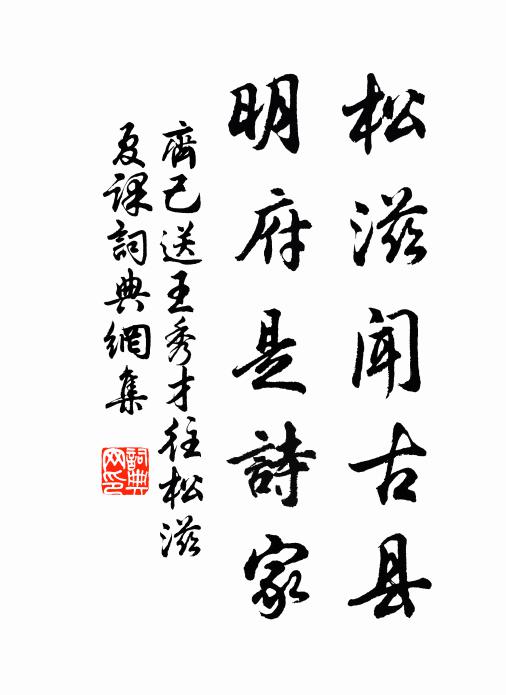 松滋闻古县
明府是詩家
齊己送王秀才往松滋
夏課詞典網集
詞典网印